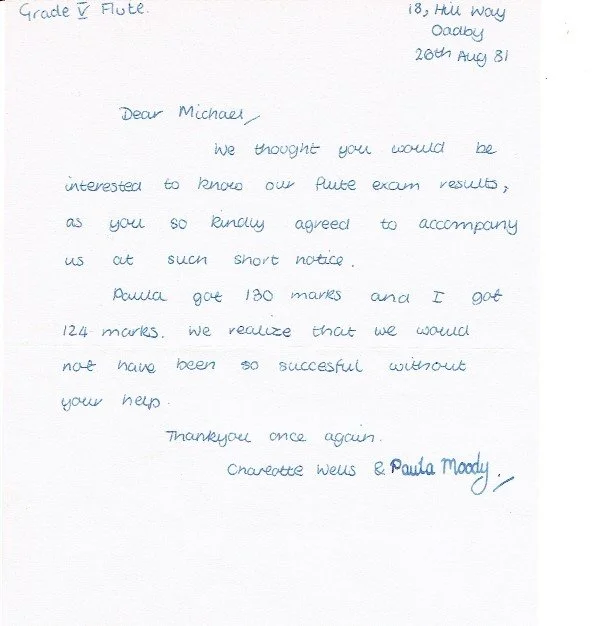 Grade V Flute.
18, Hill Way
Oadby
26th Aug 81
Dear Michael,
We thought you would be
interested to know our flute exam results,
as you so kindly agreed to accompany
us at such short notice.
Paula got 130 marks and I got
124 marks. We realize that we would
not have been so succesful without
your help.
Thankyou once again.
Charlotte Wells & Paula Moody.